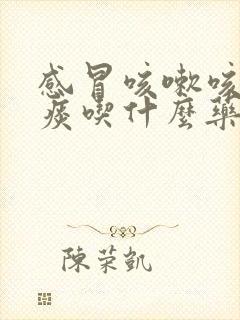 感冒咳嗽咳
痰喫什麼藥
陳荣凱